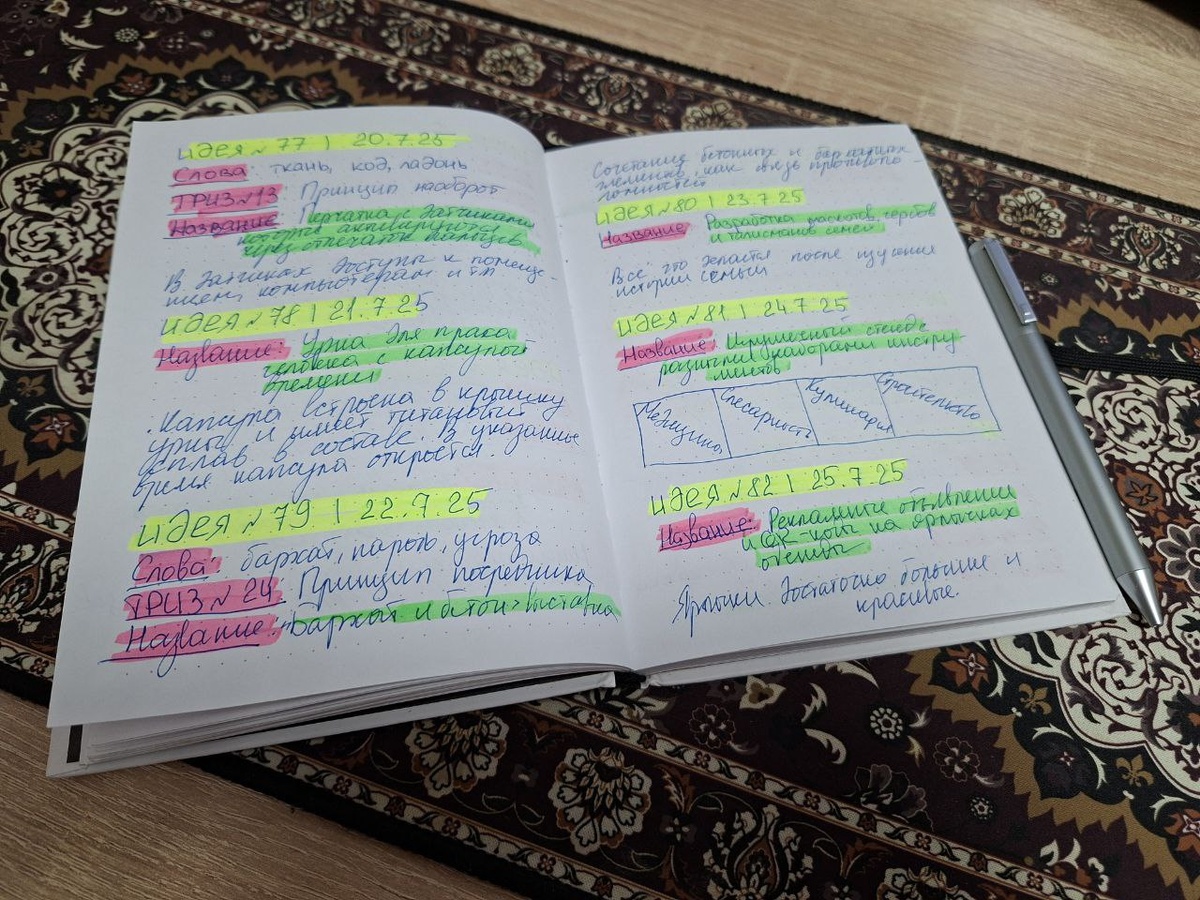 идея № 77 | 20.7.25
Слова: ткань, код, ладонь
ТРИЗ №13 Принцип наоборот
Название: Перчатка с датчиками
которые активируются
через отпечаток пальцев
В датчиках доступы к помеще-
щениям, компьютерам и тп
идея № 78 | 21.7.25
Название: Урна для праха
человека с капсулой
времени
Капсула встроена в крышку
урны и имеет титановый
сплав в составе. В указанное
время капсула откроется.
идея № 79 | 22.7.25
Слова: бархат, пароль, угроза
ТРИЗ № 24: Принцип посредника
Название: "Бархат и бетон" выставка
Сочетание бетонных и бархатных
элементов, как связь противопо-
ложностей
идея № 80 | 23.7.25
Название: Разработка гербов
и талисманов семей
Всё это делается после изучения
истории семьи
идея № 81 | 24.7.25
Название: Игрушечный стенд с
различными наборами инстру-
ментов
Медицина Слесарность Кулинария Строительство
идея № 82 | 25.7.25
Название: Рекламные объявления
и qr-коды на ярлычках
одежды
Ярлычки достаточно большие и
красивые.